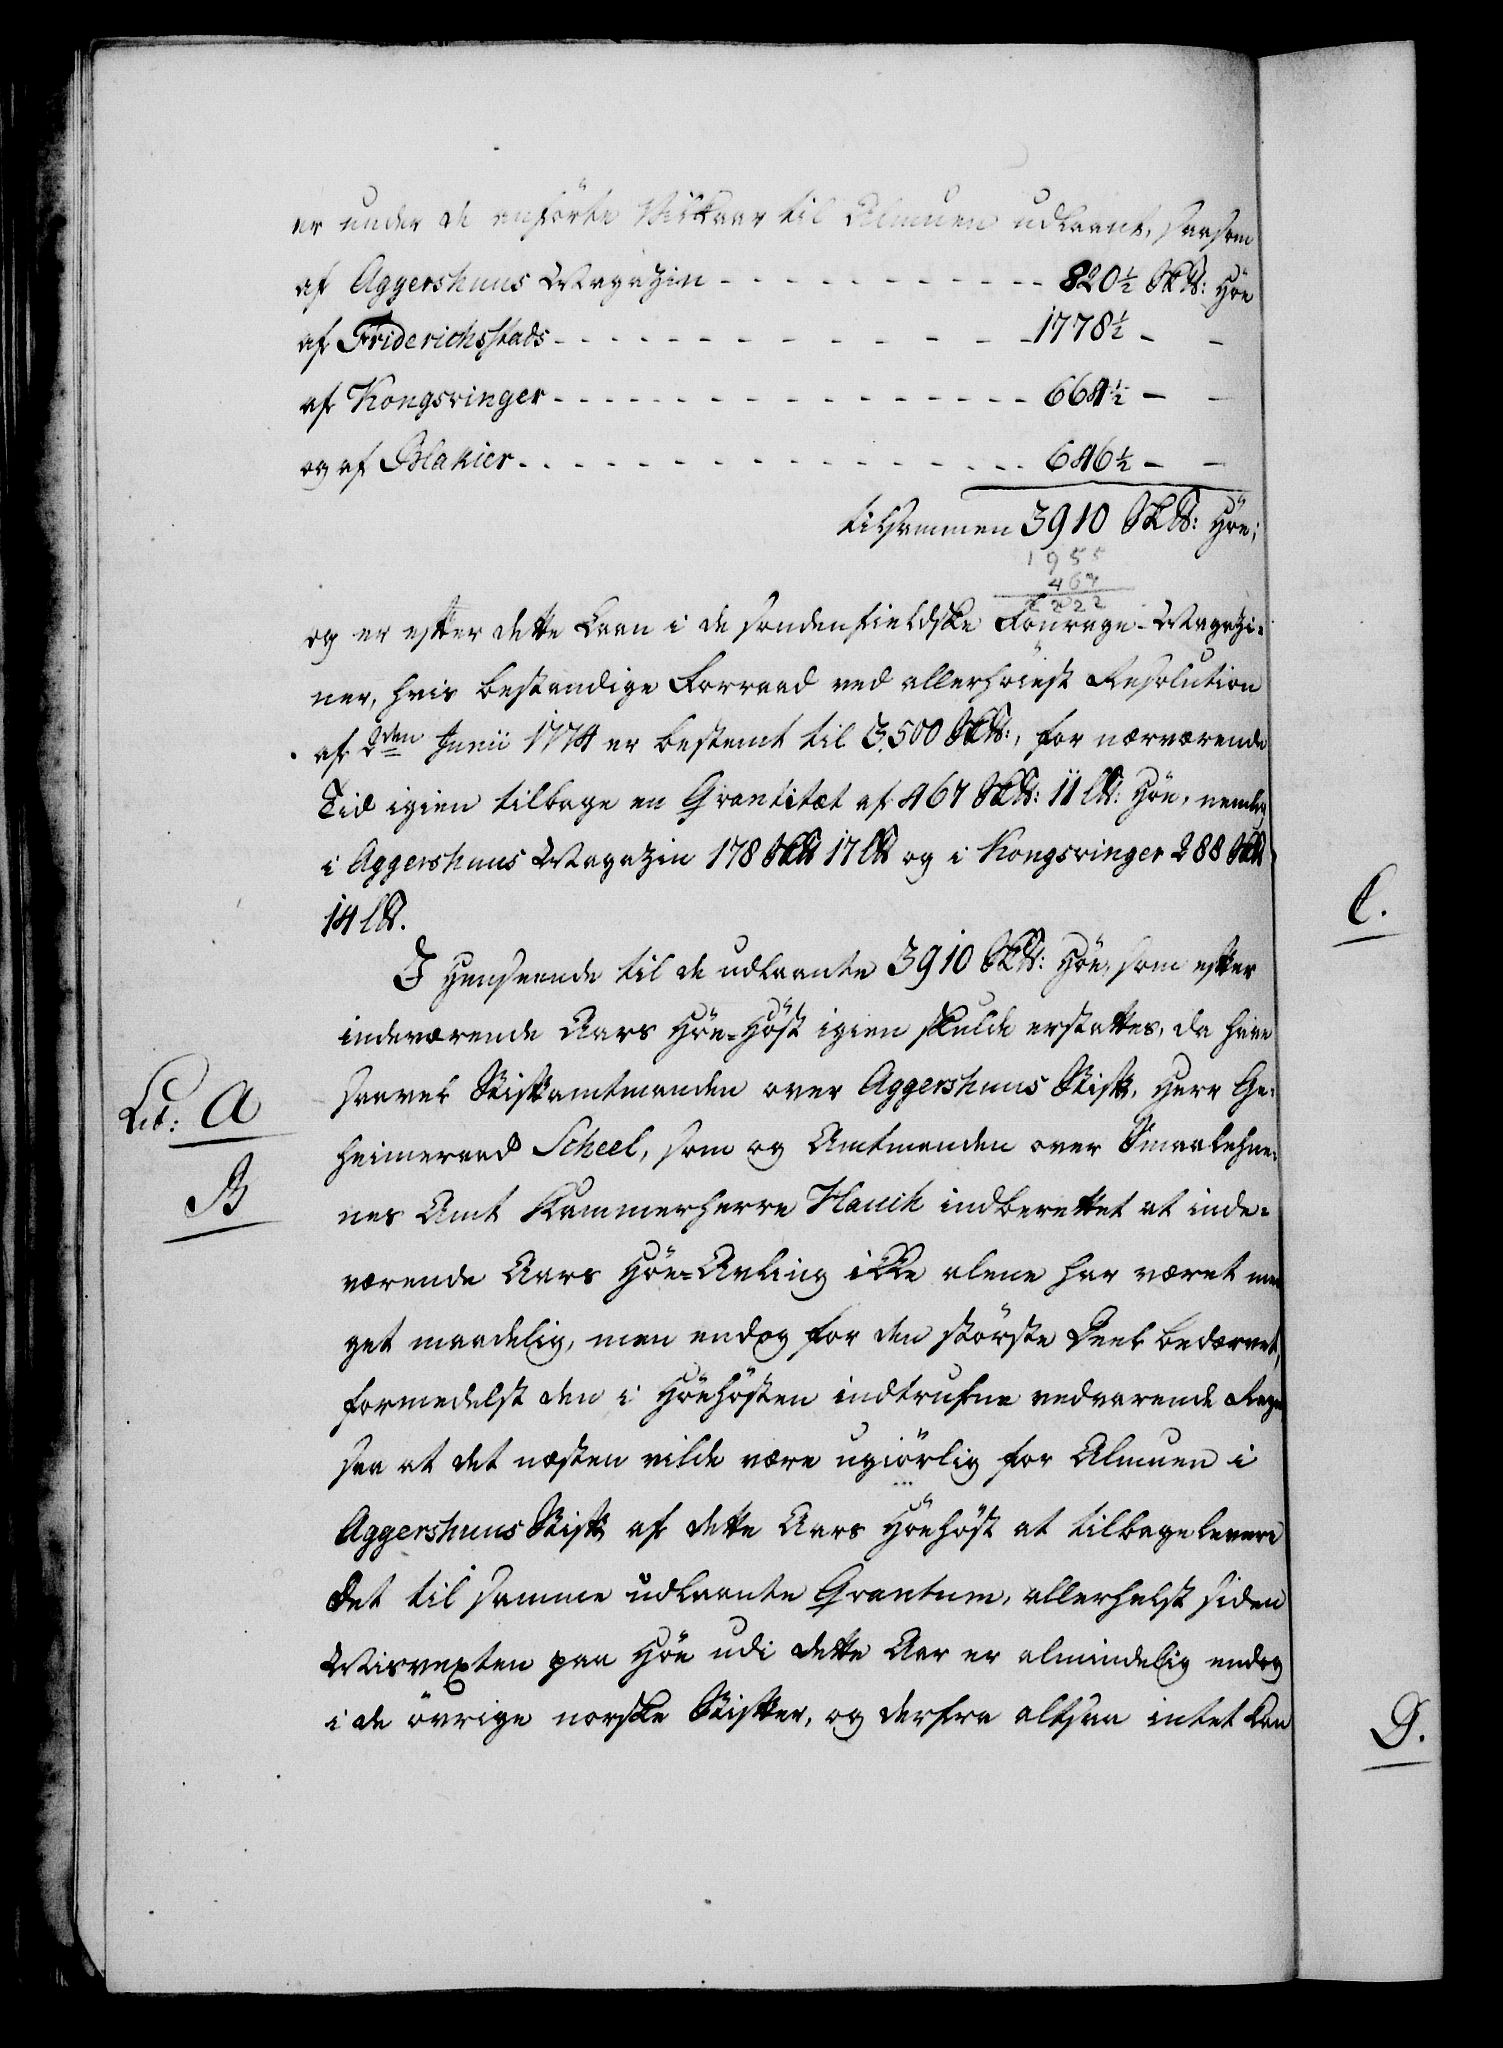 er under de anförte Vilkaar til Almuen udlaant, saasom
af Aggershuus Magazin - - - - - - - - - - 820½ Sk℔: Höe
af Friderichsstads - - - - - - - - - - - - - 1778½ - -
af Kongsvinger - - - - - - - - - - - - - - - 664½ - -
og af Blakier - - - - - - - - - - - - - - - 646½ - -
tilsammen 3910 Sk℔: Höe;
1955
467
2222
og er efter dette Laan i de söndenfieldske Fourage-Magazi-
ner, hvis bestandige Forraad ved allerhöiest Resolution
af 2den Junii 1774 er bestemt til 3500 Sk℔:, for nærværende
Tid igien tilbage en Qvantitæt af 467 Sk℔: 11 l℔: Höe, nemlig
i Aggershuus Magazin 178 Sk℔ 17 l℔ og i Kongsvinger 288 Sk℔
14 l℔.
I Henseende til de udlaante 3910 Sk℔: Höe, som efter
indeværende Aars Höe-Höst igien skulde erstattes, da have
Lit: A
saavel Stiftamtmanden over Aggershuus Stift, Herr Ge-
heimeraad Scheel, som og Amtmanden over Smaalehne-
B
nes Amt Kammerherre Hauch indberettet at inde-
værende Aars Höe-Avling ikke alene har været me
get maadelig, men endog for den störste Deel bedærvet,
formedelst den i Höehösten indtrufne vedvarende Regn
saa at det næsten vilde være ugiörlig for Almuen i
Aggershuus Stift af dette Aars Höehöst at tilbagelevere
det til samme udlaante Qvantum, allerhelst siden
Misvexten paa Höe udi dette Aar er almindelig endog
i de övrige norske Stifter, og derfra altsaa intet kan
C.
D.